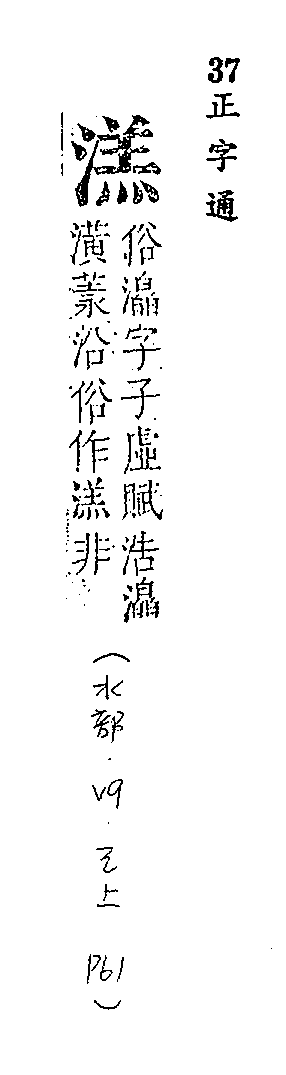 37正字通
溔
俗字子虛賦浩
潢沿俗作溔非
(水部.v9.巳上 P61)